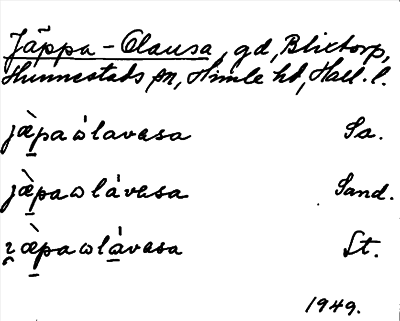 Jäppa-Clausa, gd, Blixtorp,
Hunnestads sn, Himle hd, Hall. l.
jæ̀pa ω lavesa Sa.
jæ̀pa ω lávesa Sand.
ɪæ̀pa ω lávesa St.
1949.